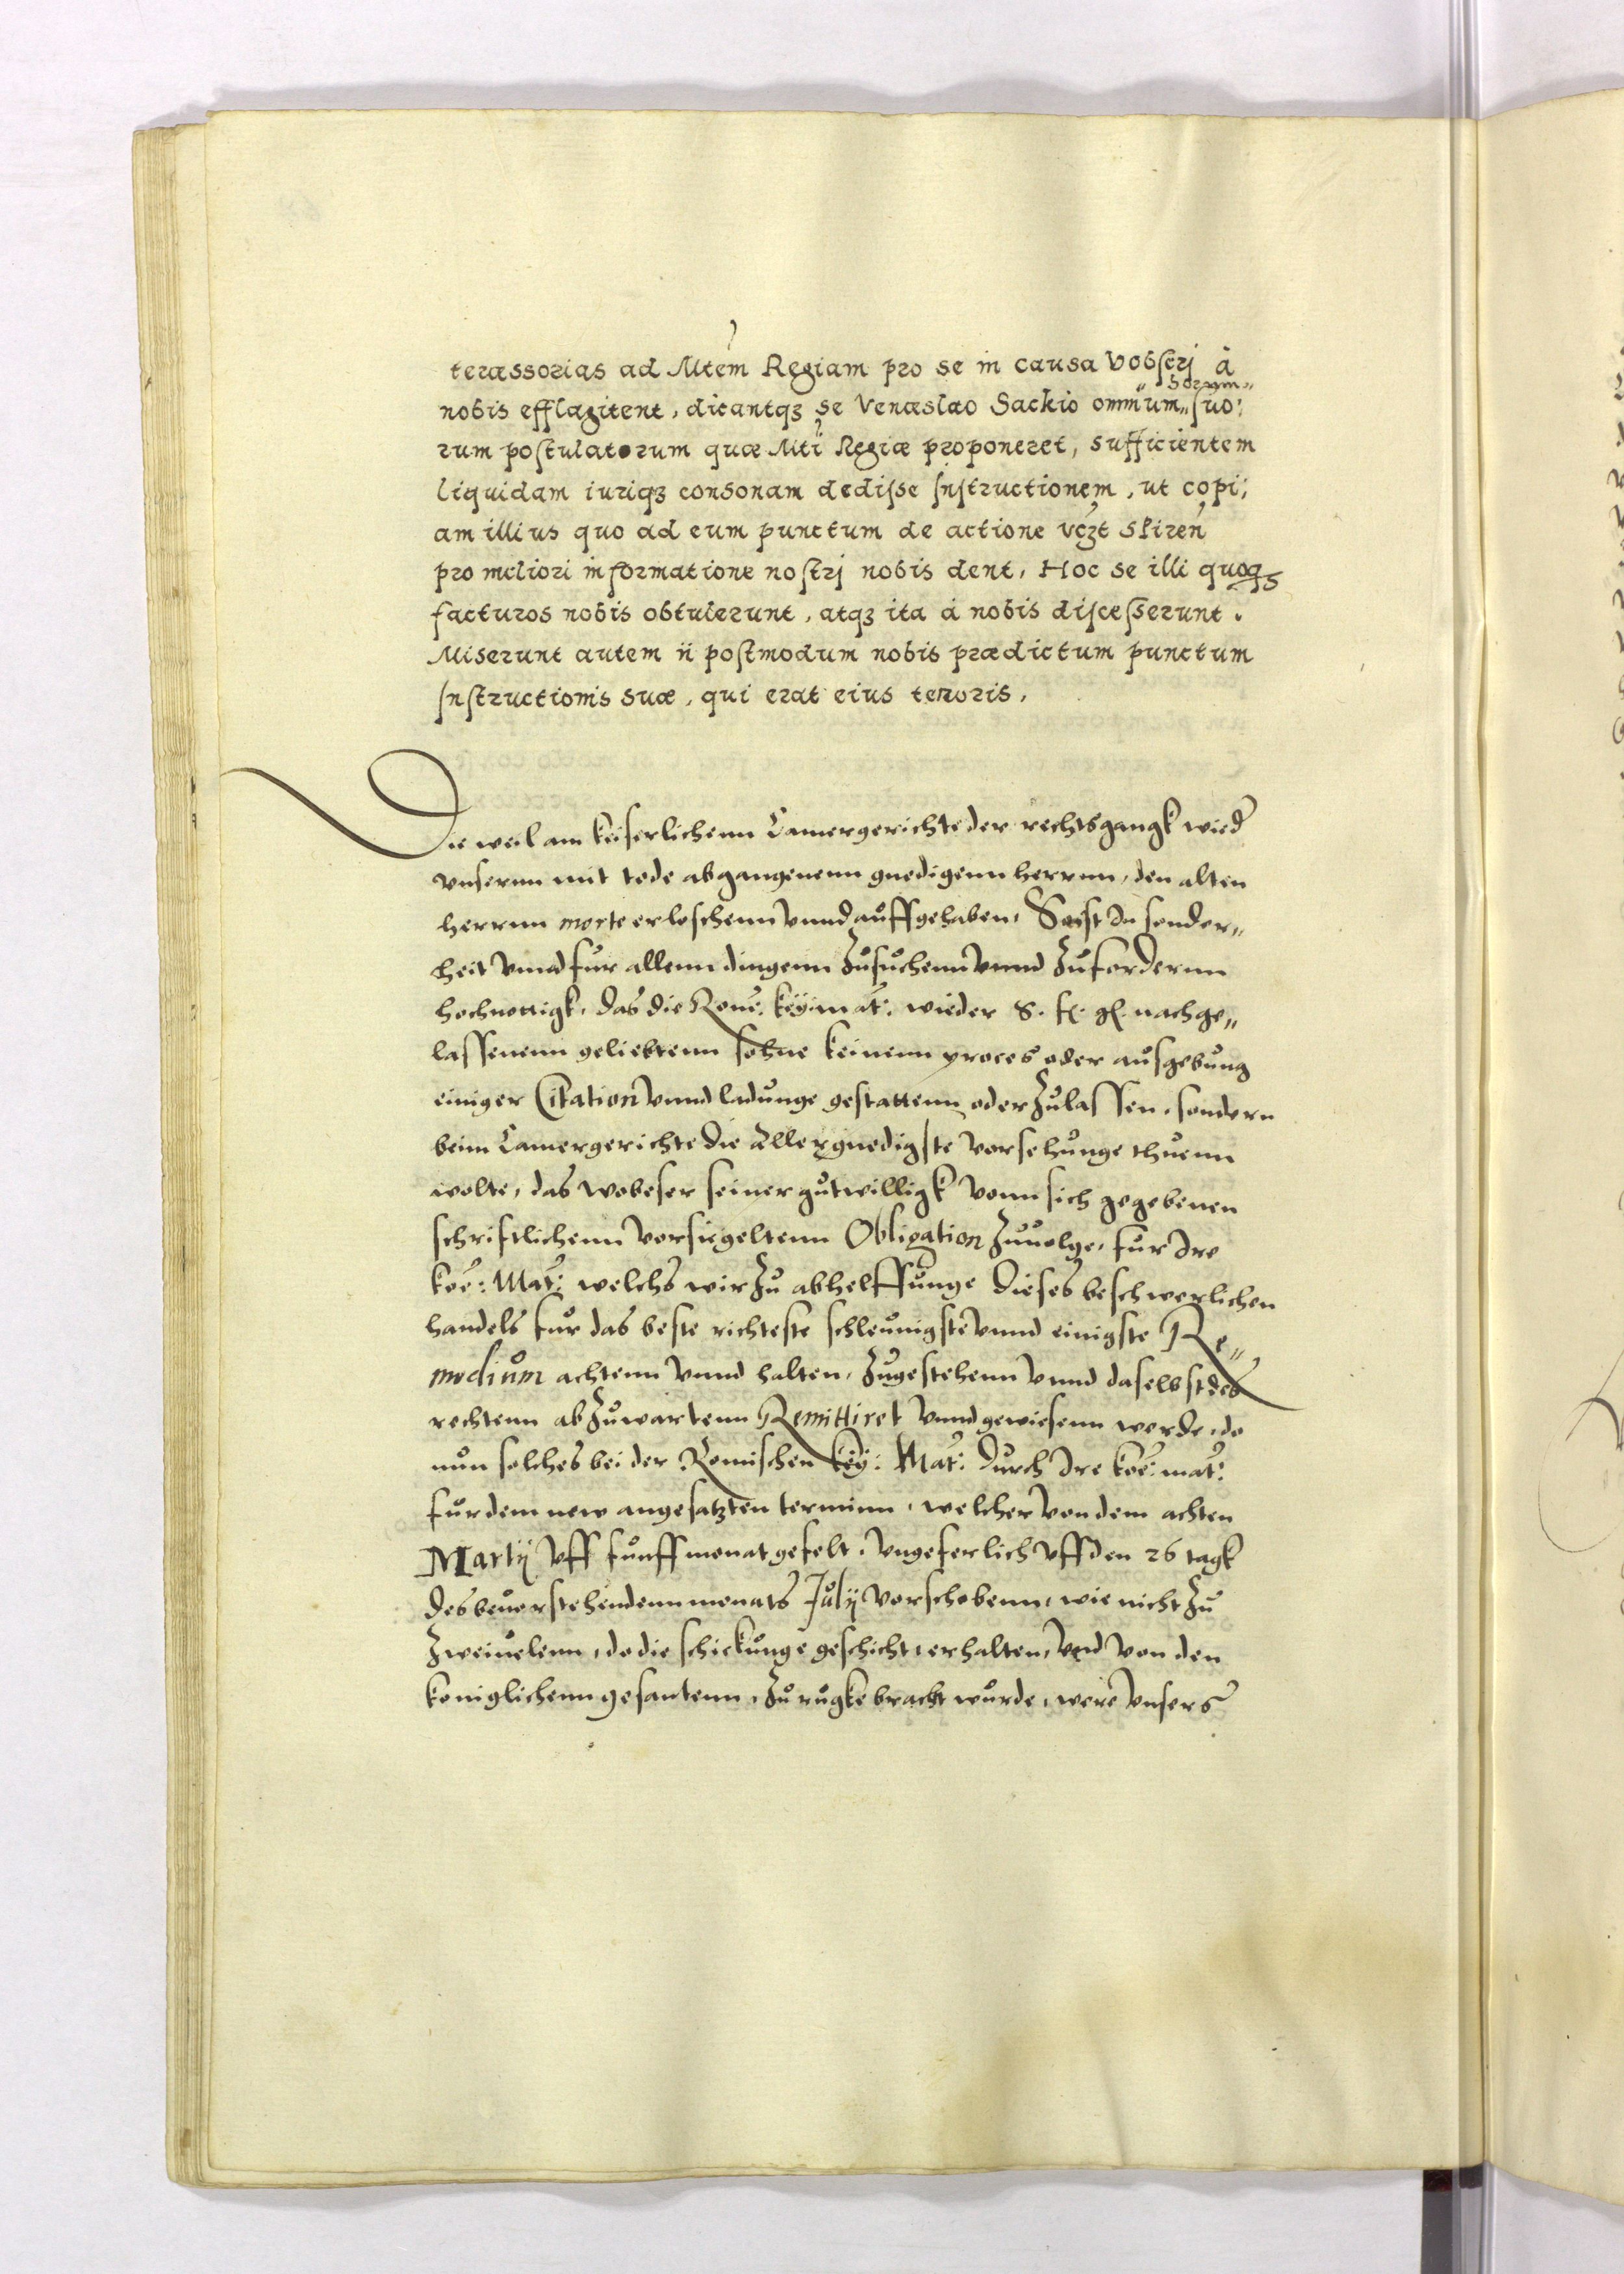 teræssorias ad Mtem Regiam pro se in causa Vobseri à
nobis efflagitent, dicantqз se Venæslao Sackio omnium horum suo:
rum postulatorum quæ Mti Regiæ proponeret, sufficientem
liquidam iuriqз consonam dedisse Instructionem, ut copi:
am illius quo ad eum punctum de actione vczt
pro meliori informatione nostri nobis dent, Hoc se illi quoqз
facturos nobis obtulerunt, atqз ita à nobis discesserunt.
Miserunt autem ii postmodum nobis prædictum punctum
Instructionis suæ, qui erat eius tenoris.
Die weil am keiserlichenn Camergerichte der rechtsgangk wied
vnsernn mit tode abgangenenn gnedigenn herrnn, den alten
herrnn morte erloschenn vnnd auffgehaben, So ist In sonder„
heit vnnd fur allenn dingenn Zusuchenn vnnd Zufordernn
hochnottigk, das die Rome: Key: mat: wieder S. f. g. nachge„
lassenenn geliebtenn sohne keinenn proces oder ausgebung
einiger Citation vnnd ladunge gestattenn oder Zulassen, sondern
beim Camergerichte die Allergnedigste vorsehunge thuenn
wolte, das wobeser seiner gutwilligk vonn sich gegebenen
schriftlichenn vorsiegeltenn Obligation Zuuolge, fur Ire
Koe: Mat: welchs wir Zu abhelffunge dieses beschwerlichen
handels fur das beste richteste schleunigste vnnd einigste Re„
medium achtenn vnnd halten, Zugestehenn vnnd daselbst des
rechtenn abZuwartenn Remittiret vnnd gewiesenn werde, do
nun solches bei der Romischen Key: Mat: durch Ire Koe: mat:
fur dem new angesatzten terminn, welcher von dem achten
Martij vff funff monat gefelt, vngeferlich vff den 26 tagk
des beuorstehendenn monats July vorschobenn, wie nicht Zu
Zweiuelenn, do die schickunge geschicht, erhalten, vnd von den
koniglichenn gesantenn, Zu rugke bracht wurde, were vnsers